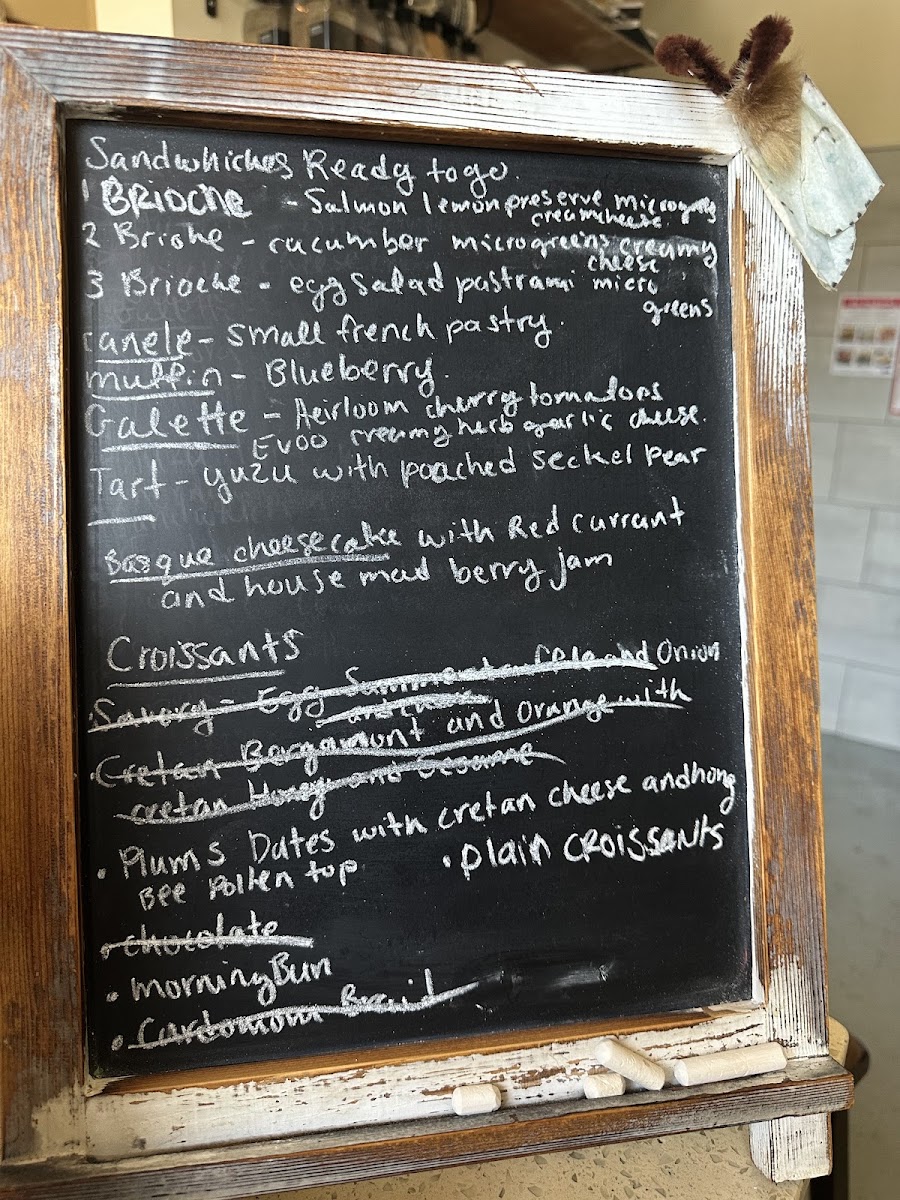 Sandwhiches Ready to go
1 BRIOCHE - Salmon lemon preserve microgreens
creamcheese
2 Brishe - cucumber microgreens creamy
cheese
3 Brioche - egg salad pastrami micro
greens
canele - small french pastry.
muffin - Blueberry.
Galette - Heirloom cherry tomatoos
EVOO creamy herb garlic cheese.
Tart - yuzu with poached seckel pear
Basque cheesecake with Red currant
and house mad berry jam
Croissants
• Savory - Egg and Onion
• Cretan Bergamont and Orange with
cretan Honey and Sesame
• Plums Dates with cretan cheese and hony
Bee Pollen top
• plain CROISSANTS
• chocolate
• morning Bun
• Cardomom Braid